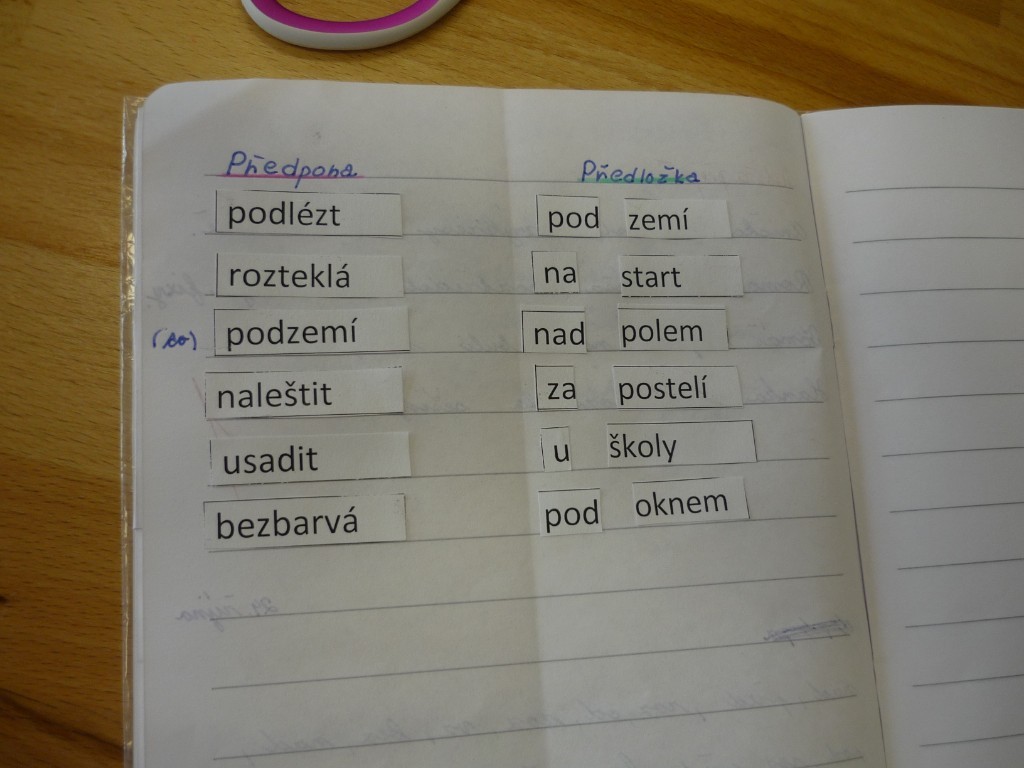 Předpona Předložka
podlézt pod zemí
rozteklá na start
(to) podzemí nad polem
naleštit za postelí
usadit u školy
bezbarvá pod oknem